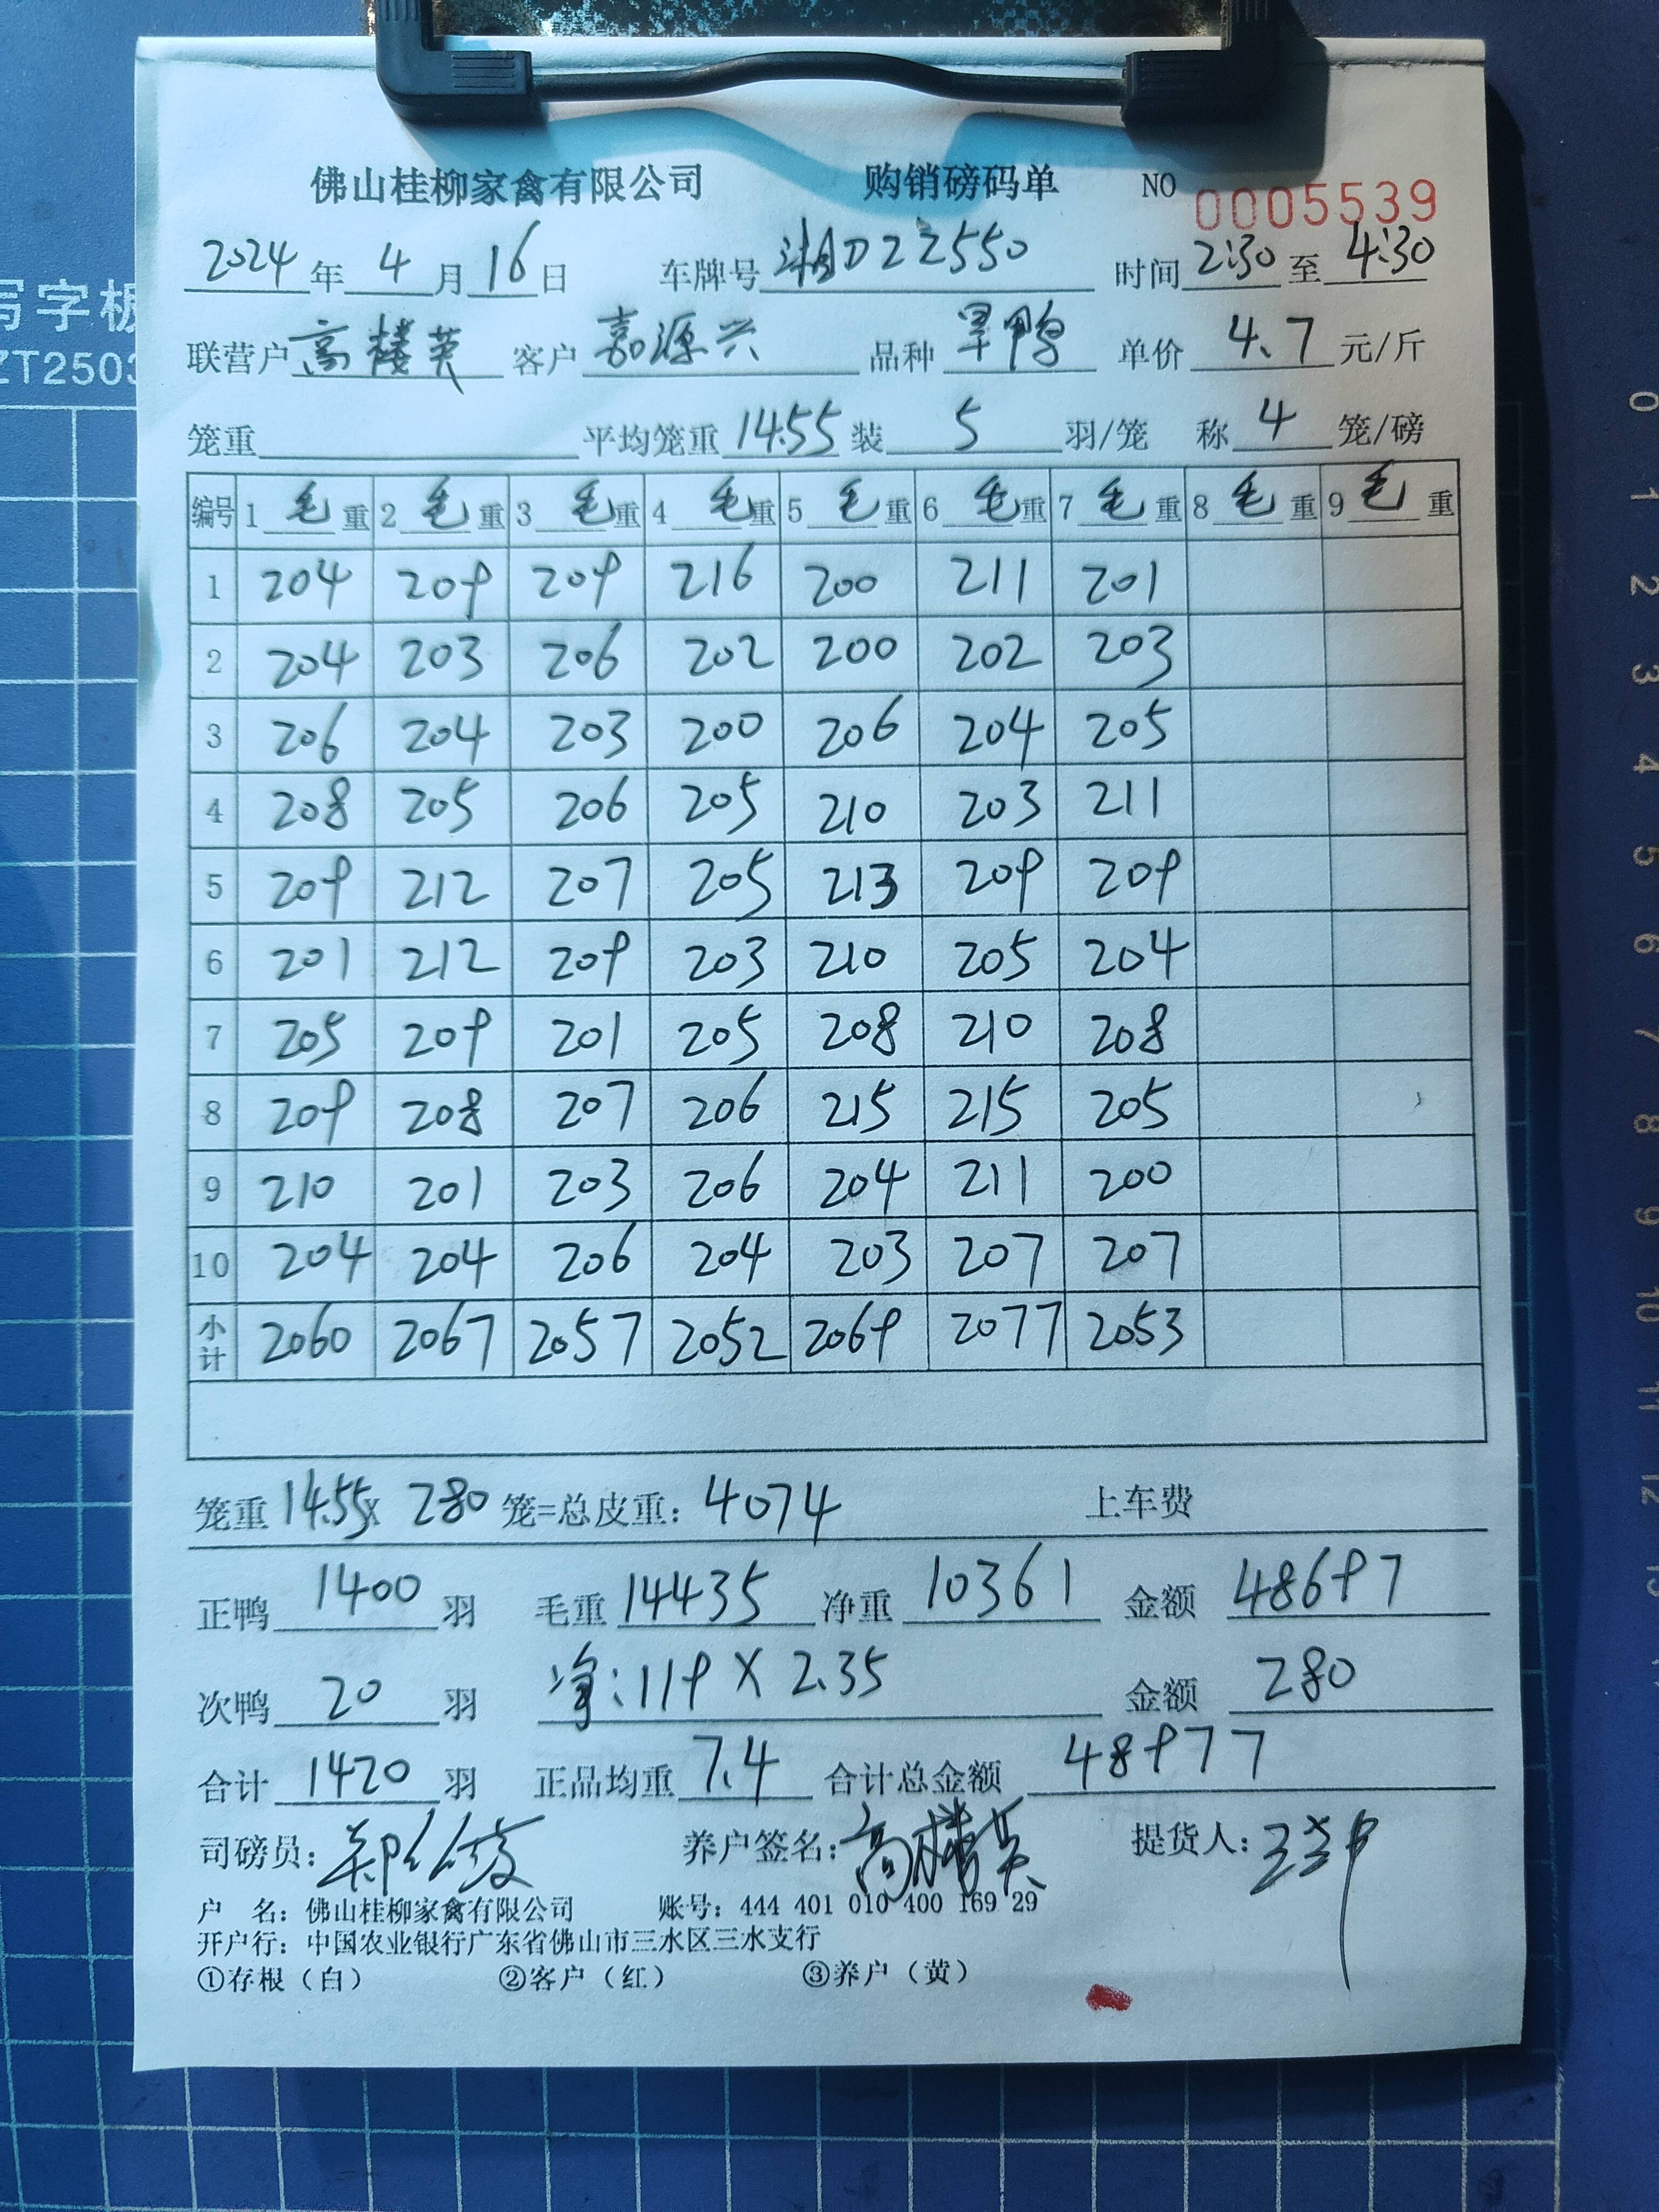 佛山桂柳家禽有限公司 购销磅码单 NO 0005539
2024年4月16日 车牌号 湘D22550 时间 2:30 至 4:30
联营户 高楼英 客户 嘉源兴 品种 旱鸭 单价 4.7 元/斤
笼重 平均笼重 14.55 装 5 羽/笼 称 4 笼/磅
编号 1 毛重 2 毛重 3 毛重 4 毛重 5 毛重 6 毛重 7 毛重 8 毛重 9 毛重
1 204 209 209 216 200 211 201
2 204 203 206 202 200 202 203
3 206 204 203 200 206 204 205
4 208 205 206 205 210 203 211
5 209 212 207 205 213 209 209
6 201 212 209 203 210 205 204
7 205 209 201 205 208 210 208
8 209 208 207 206 215 215 205
9 210 201 203 206 204 211 200
10 204 204 206 204 203 207 207
小计 2060 2067 2057 2052 2069 2077 2053
笼重 14.55 x 280 笼=总皮重: 4074 上车费
正鸭 1400 羽 毛重 14435 净重 10361 金额 48697
次鸭 20 羽 净: 119 X 2.35 金额 280
合计 1420 羽 正品均重 7.4 合计总金额 48977
司磅员: 养户签名: 高楼英 提货人:
户 名: 佛山桂柳家禽有限公司 账号: 444 401 010 400 169 29
开户行: 中国农业银行广东省佛山市三水区三水支行
①存根（白） ②客户（红） ③养户（黄）
写字板
ZT2503
0
1
2
3
4
5
6
7
8
9
10
11
12
13